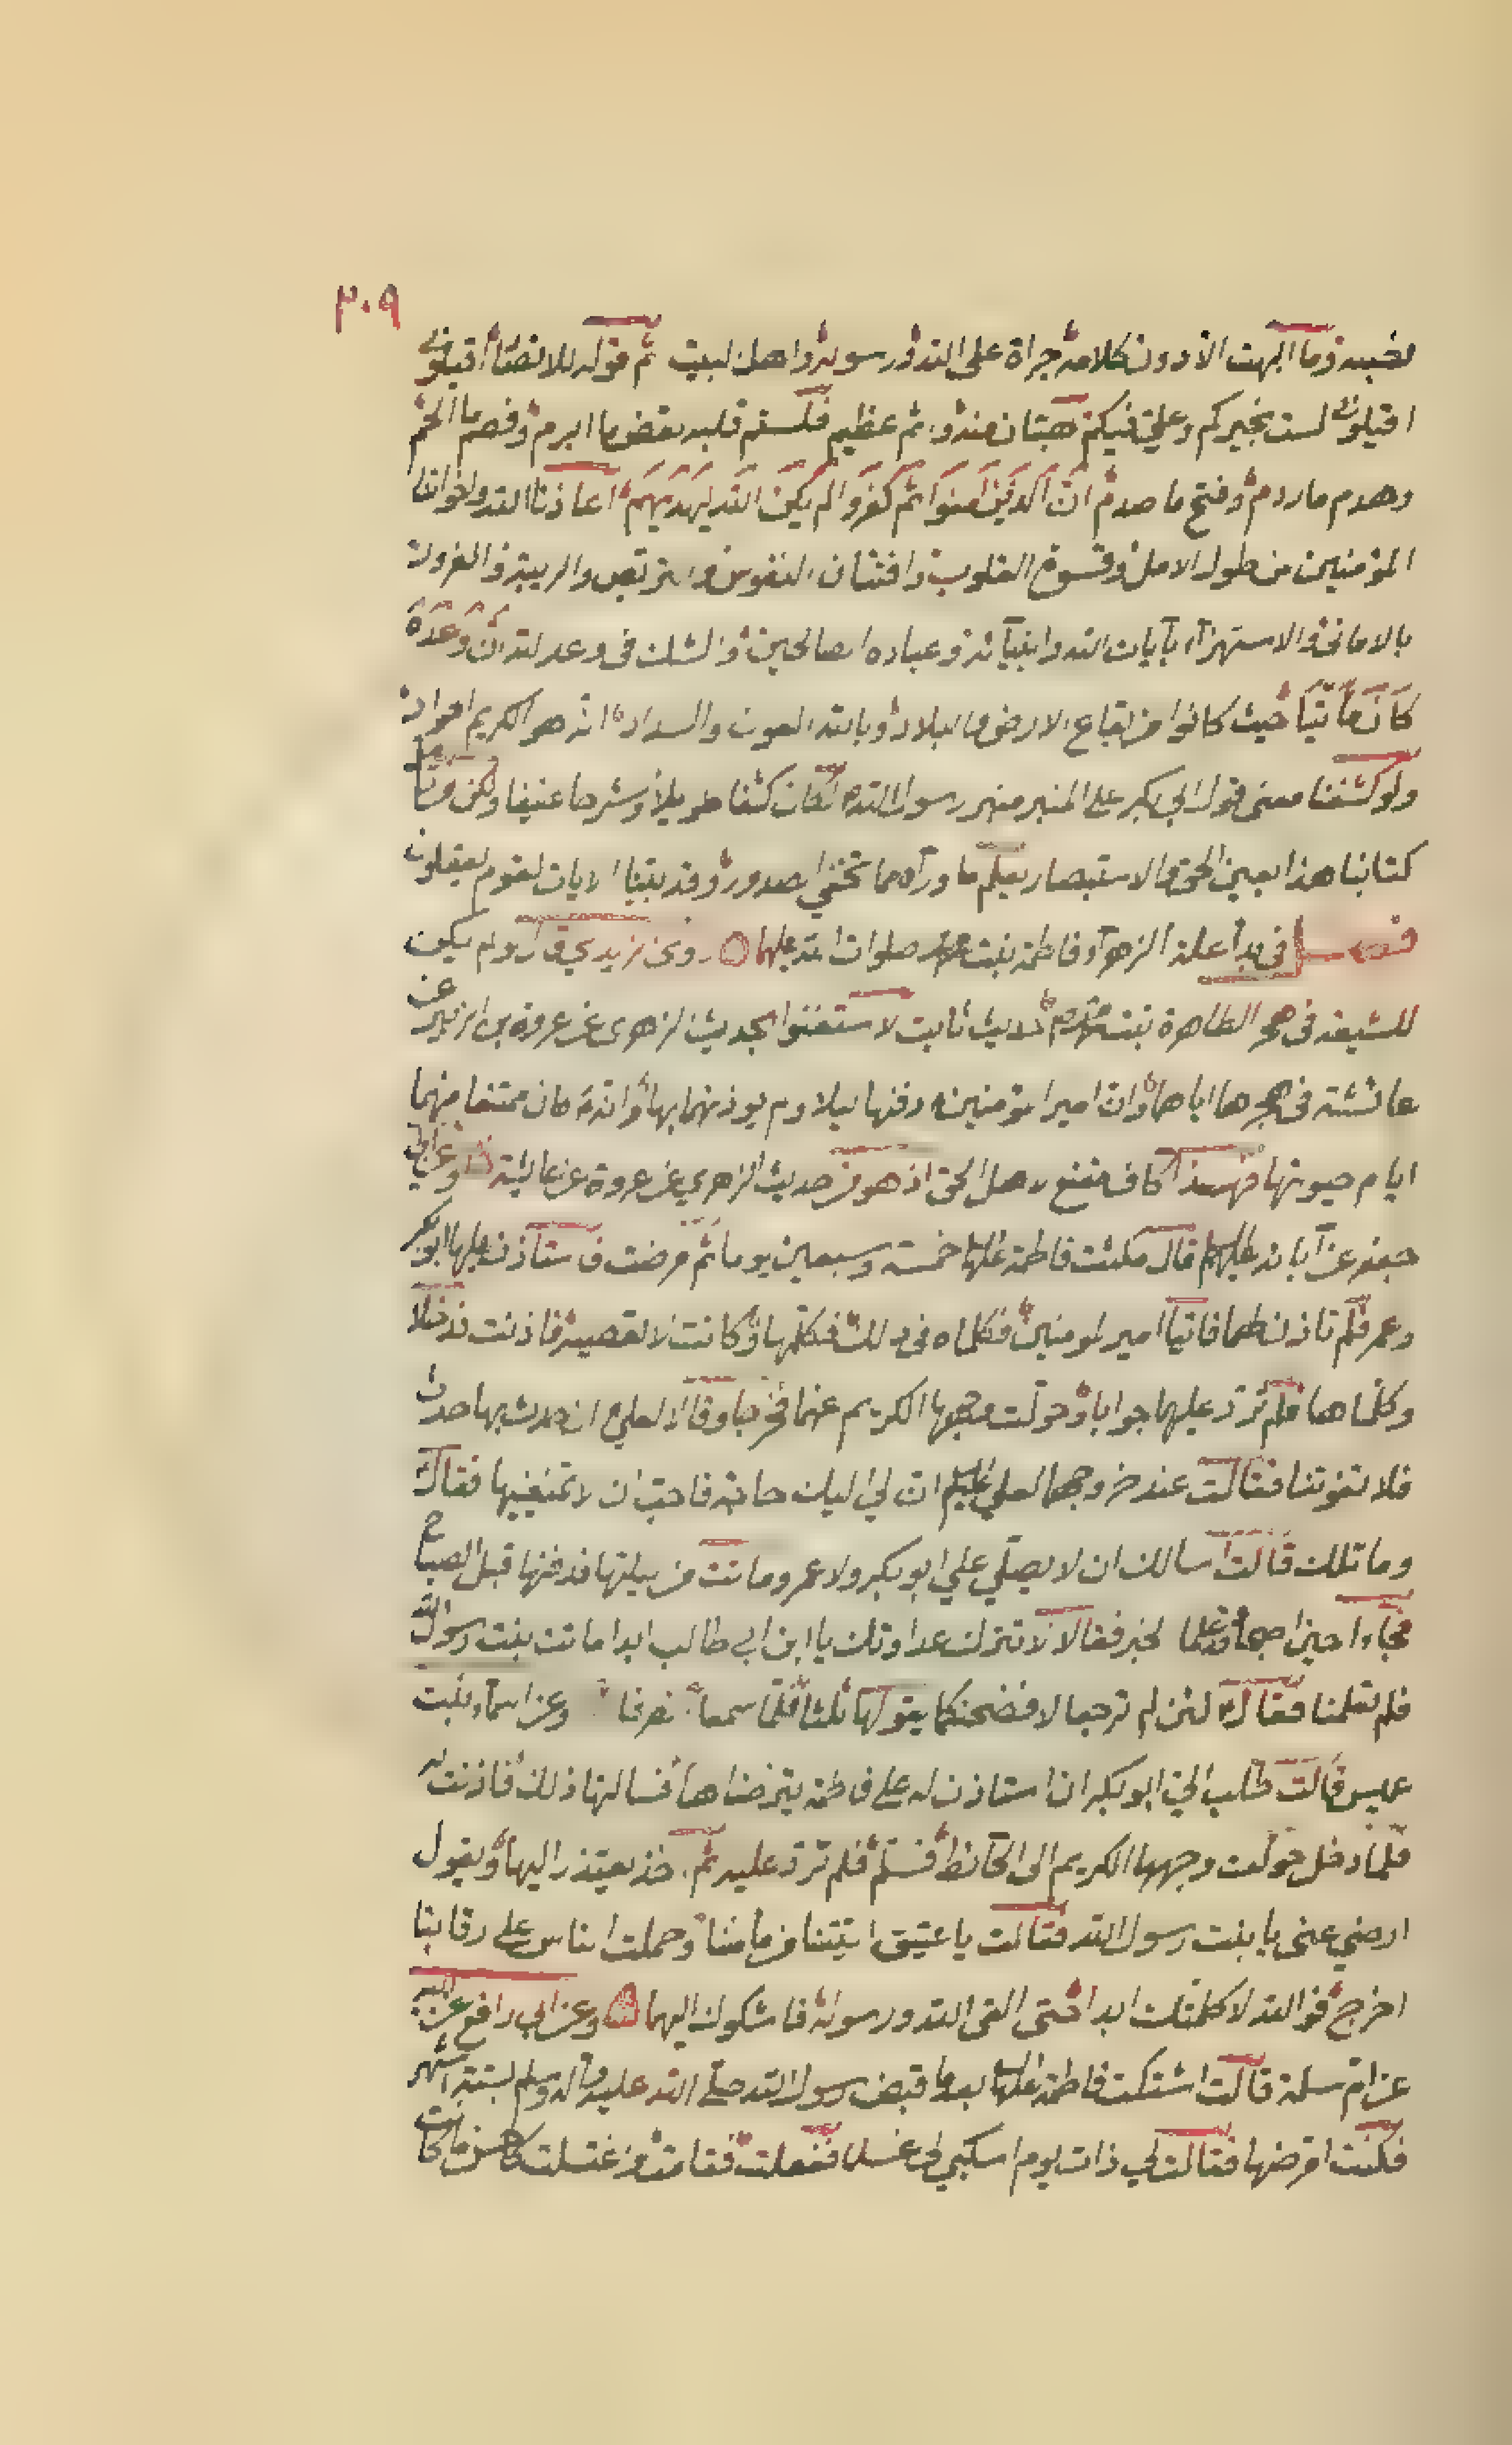 ٣٠٩
لضببه وما البهت الا دون كلامه جراة على الله ورسوله واهل البيت ثم قوله للانصار اقيلوني
اقيلوني لست بخيركم وعلي فيكم بهتان منه واثم عظيم فلستم قلبه بعض ما ابرم وفصم ما الحم
وهدم ما ردم وفتح ما صدم ان الذين امنوا ثم كفروا لم يكن الله ليهديهم اعاذنا الله واخواننا
المؤمنين من طول الامل وقسوة القلوب وافتتان النفوس والتربص والريبة والغرور
بالاماني والاستهزاء بآيات الله وانبيائه وعباده الصالحين والشك في وعد الله ان وعده
كان مأتيا حيث كانوا من بقاع الارض والبلاد وبالله العون والسداد انه هو الكريم الجواد
ولو كشفنا معنى قول ابي بكر على المنبر منبر رسول الله لكان كشفا طويلا وشرحا عنيفا ولكن من
كتابنا هذا بعين الحق والاستبصار يعلم ما ورآه مما تخفي الصدور وقد بينا الايات لقوم يعقلون
فصل في بدأ علة الزهرآء فاطمة بنت محمد صلوات الله عليها روى يزيدي قال ولم يكن
للشيعة في هجر الطاهرة بنت محمد حديث ثابت لاستغنوا بحديث الزهري عن عروة بن الزبير عن
عائشة في هجرها اياهما وان امير المؤمنين دفنها ليلا ولم يوذنهما بها وانه كان ممتنعا منهما
ايام حيوتها فهذا كاف مقنع لاهل الحق اذ هو من حديث الزهري عن عروة عن عايشة وعن ابي
جعفر عن آبائه عليهم قال مكثت فاطمة عليها خمسة وسبعين يوما ثم مرضت فاستأذن عليها ابو بكر
وعمر فلم تاذن لهما فاتيا امير المومنين فكلماه في ذلك فكلمها وكانت لا تعصيه فاذنت فدخلا
وكلماها فلم ترد عليهما جوابا وحولت وجهها الكريم عنهما فخرجا وقالا لعلي ان حدث بها حدث
فلا تفوتنا فقالت عند خروجهما لعلي عليه السلام ان لي اليك حاجة فاحب ان لا تمنعنيها فقال
وما تلك قالت اسالك ان لا يصلي علي ابو بكر ولا عمر وماتت من ليلتها فدفنها قبل الصباح
فجاءا حين اصبحا وقد علما الخبر فقالا لا تترك عداوتك يا ابن ابي طالب ابدا ماتت بنت رسول الله
فلم تعلمنا فقال لئن لم ترجعا لافضحنكما يقولها ثلثا فلما سمعا انصرفا وعن اسماء بنت
عميس قالت طلب الي ابو بكر ان استاذن له على فاطمة يترضاها فسالتها ذلك فاذنت له
فلما دخل حولت وجهها الكريم الى الحائط فسلم فلم ترد عليه ثم اخذ يعتذر اليها ويقول
ارضي عني يا بنت رسول الله فقالت يا عتيق اتيتنا من مأمننا وحملت الناس على رقابنا
اخرج فوالله لا كلمتك ابدا حتى القى الله ورسوله فاشكوك اليهما وعن ابي رافع عن ابيه
عن ام سلمة قالت اشتكت فاطمة عليها بعد ما قبض رسول الله صلى الله عليه وآله وسلم بستة اشهر
فكنت امرضها فقالت لي ذات يوم اسكبي لي غسلا ففعلت فقامت فاغتسلت كاحسن ما كانت